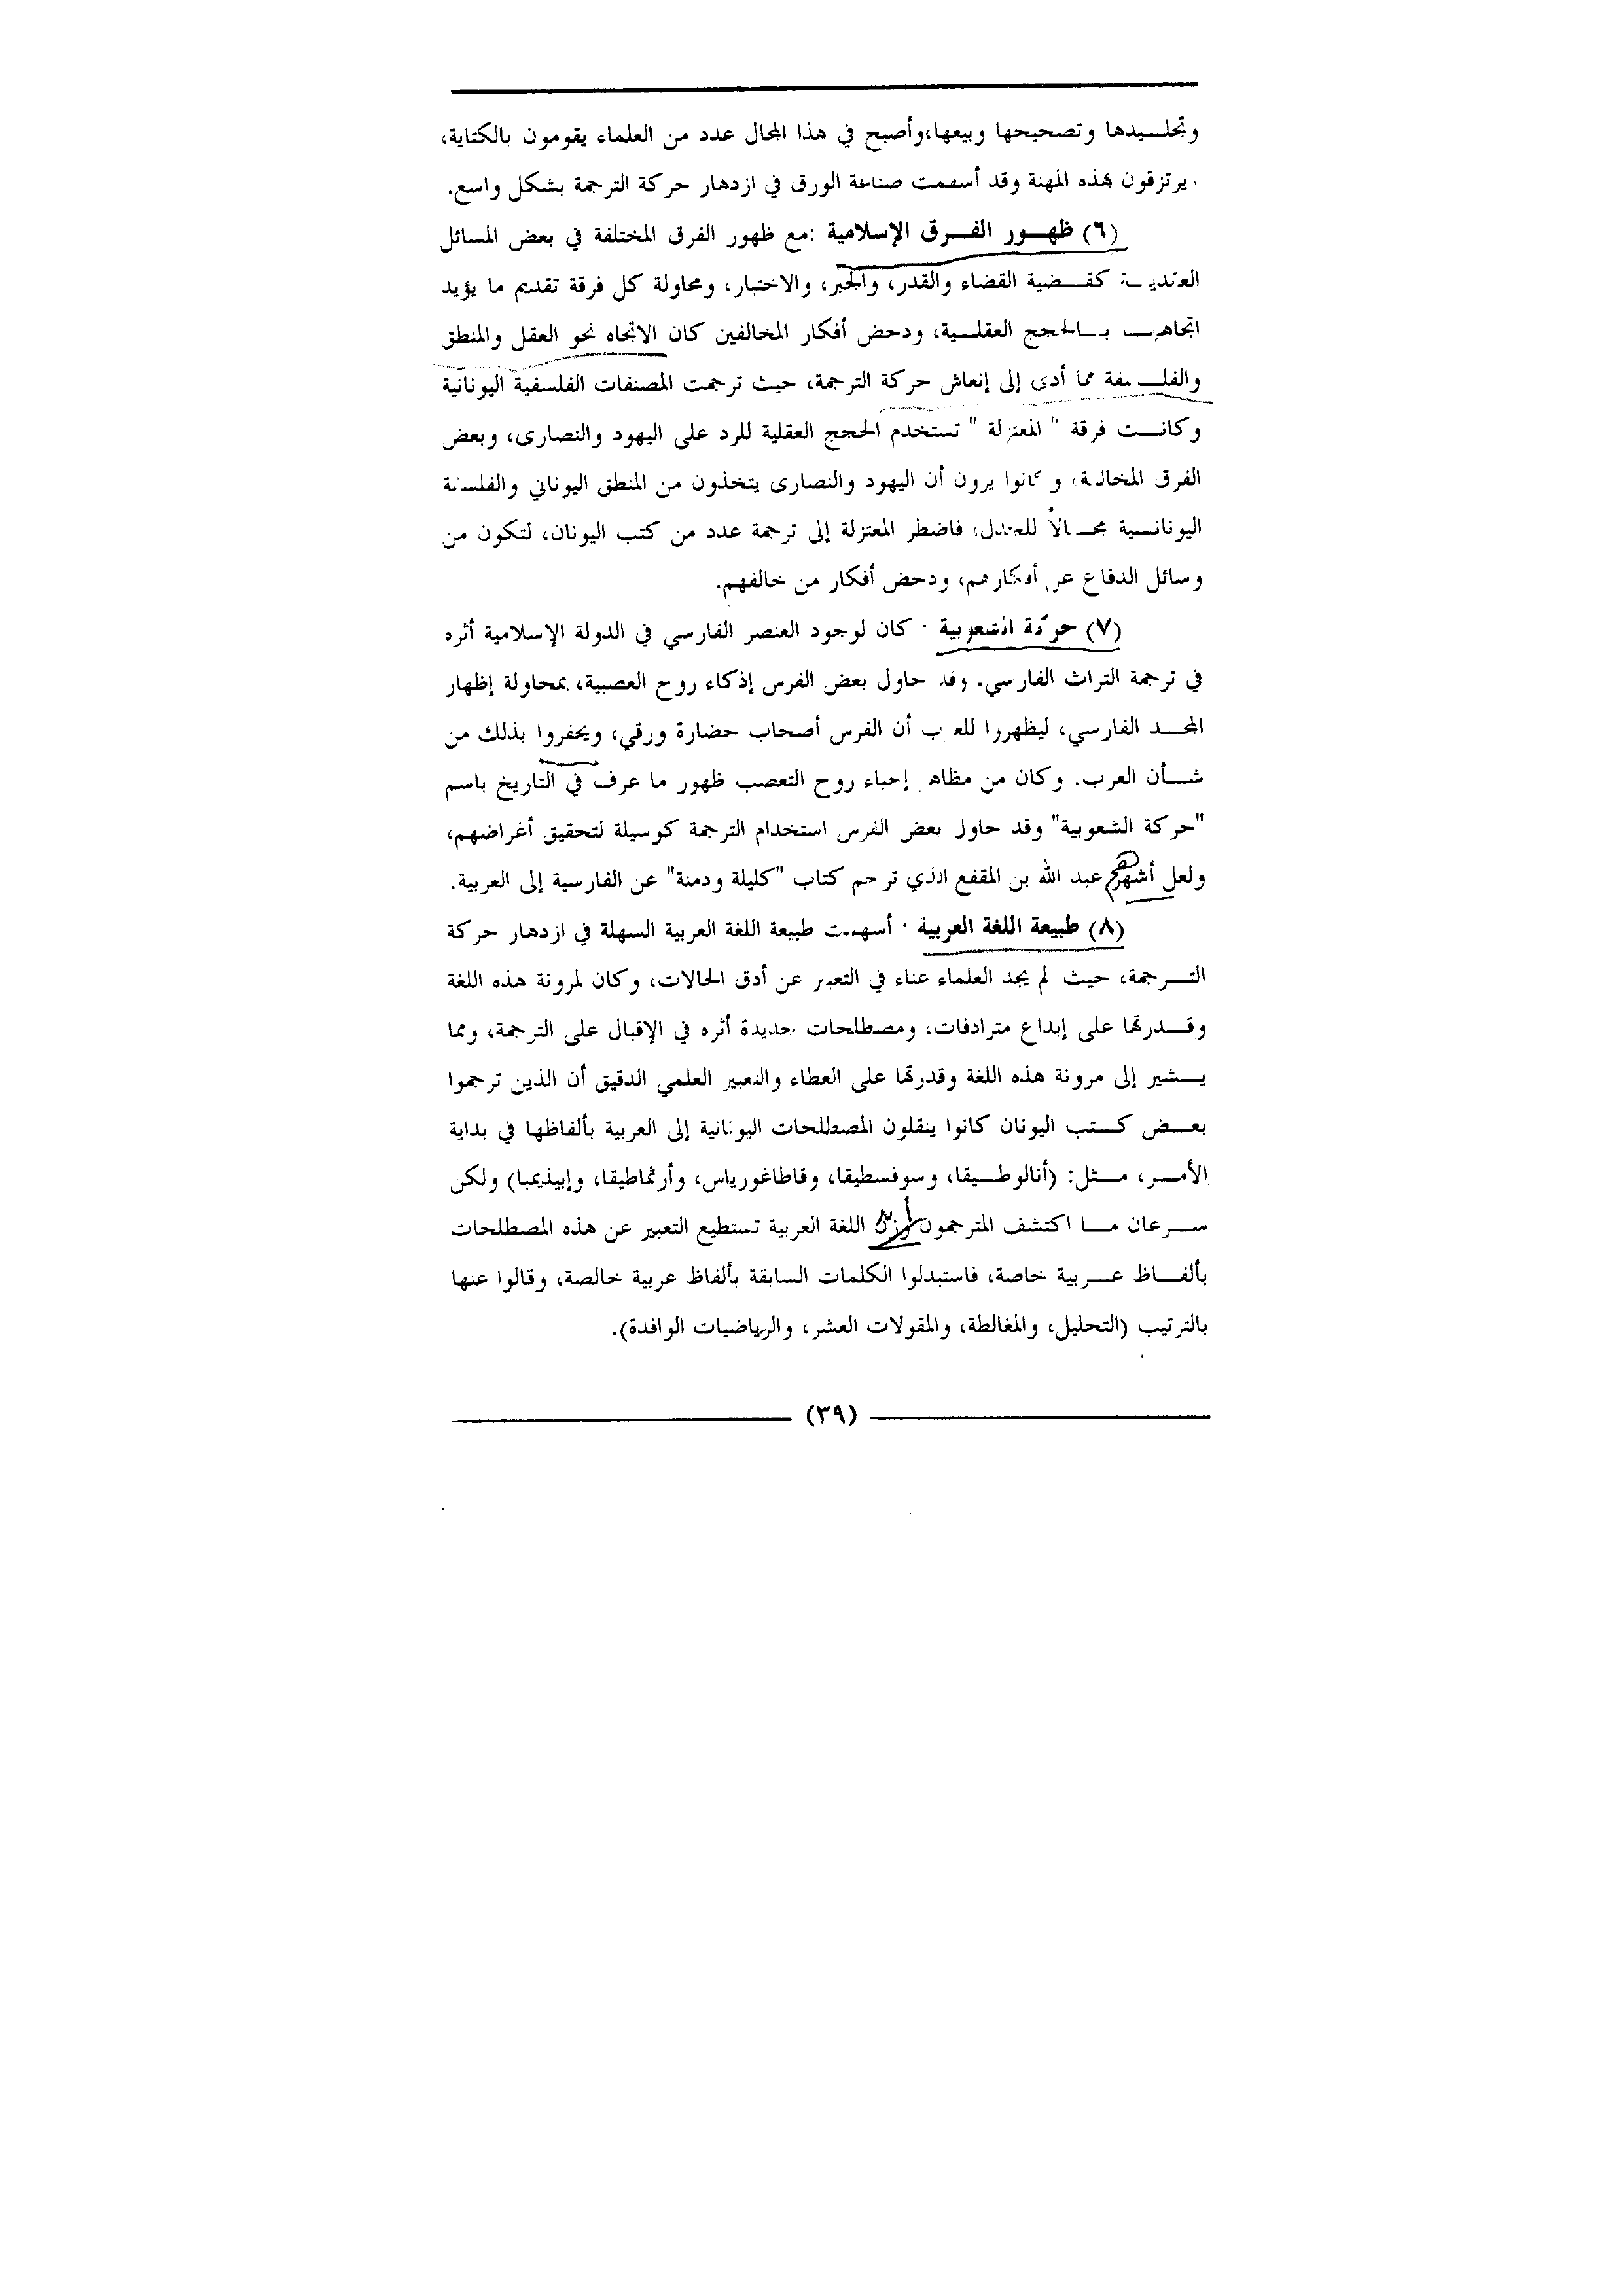 وتجلـيدها وتصحيحها وبيعها،وأصبح في هذا المجال عدد من العلماء يقومون بالكتاية،
يرتزقون بهذه المهنة وقد أسهمت صناعة الورق في ازدهار حركة الترجمة بشكل واسع.
(٦) ظهـور الفـرق الإسلامية :مع ظهور الفرق المختلفة في بعض المسائل
العقديـة كقـضية القضاء والقدر، والجبر، والاختبار، ومحاولة كل فرقة تقديم ما يؤيد
اتجاهها بـالحجج العقلـية، ودحض أفكار المخالفين كان الاتجاه نحو العقل والمنطق
والفلـسفة مما أدى إلى إنعاش حركة الترجمة، حيث ترجمت المصنفات الفلسفية اليونانية
وكانـت فرقة " المعتزلة " تستخدم الحجج العقلية للرد على اليهود والنصارى، وبعض
الفرق المخالفة، وكانوا يرون أن اليهود والنصارى يتخذون من المنطق اليوناني والفلسفة
اليونانـية مجـالاً للجدل، فاضطر المعتزلة إلى ترجمة عدد من كتب اليونان، لتكون من
وسائل الدفاع عن أفكارهم، ودحض أفكار من خالفهم.
(٧) حركة الشعوبية : كان لوجود العنصر الفارسي في الدولة الإسلامية أثره
في ترجمة التراث الفارسي. وقد حاول بعض الفرس إذكاء روح العصبية، بمحاولة إظهار
المجـد الفارسي، ليظهروا للعرب أن الفرس أصحاب حضارة ورقي، ويحفروا بذلك من
شـأن العرب. وكان من مظاهر إحياء روح التعصب ظهور ما عرف في التاريخ باسم
"حركة الشعوبية" وقد حاول بعض الفرس استخدام الترجمة كوسيلة لتحقيق أغراضهم،
ولعل أشهرهم عبد الله بن المقفع الذي ترجم كتاب "كليلة ودمنة" عن الفارسية إلى العربية.
(٨) طبيعة اللغة العربية : أسهمت طبيعة اللغة العربية السهلة في ازدهار حركة
التـرجمة، حيث لم يجد العلماء عناء في التعبير عن أدق الحالات، وكان لمرونة هذه اللغة
وقـدرتها على إبداع مترادفات، ومصطلحات جديدة أثره في الإقبال على الترجمة، ومما
يـشير إلى مرونة هذه اللغة وقدرتها على العطاء والتعبير العلمي الدقيق أن الذين ترجموا
بعـض كـتب اليونان كانوا ينقلون المصطلحات اليونانية إلى العربية بألفاظها في بداية
الأمـر، مـثل: (أنالوطـيقا، وسوفسطيقا، وقاطاغورياس، وأرثماطيقا، وإبيذيميا) ولكن
سـرعان مـا اكتشف المترجمون أن اللغة العربية تستطيع التعبير عن هذه المصطلحات
بألفـاظ عـربية خاصة، فاستبدلوا الكلمات السابقة بألفاظ عربية خالصة، وقالوا عنها
بالترتيب (التحليل، والمغالطة، والمقولات العشر، والرياضيات الوافدة).
(٣٩)